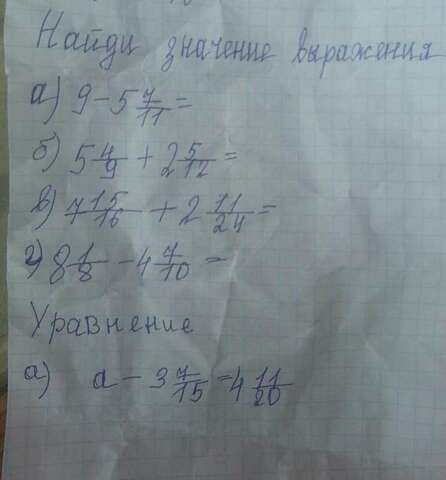 Найди значение выражения
а) 9 - 5 7/11 =
б) 5 4/9 + 2 5/12 =
в) 7 15/16 + 2 11/24 =
г) 8 1/8 - 4 7/10 =
Уравнение
а) a - 3 7/15 = 4 11/20